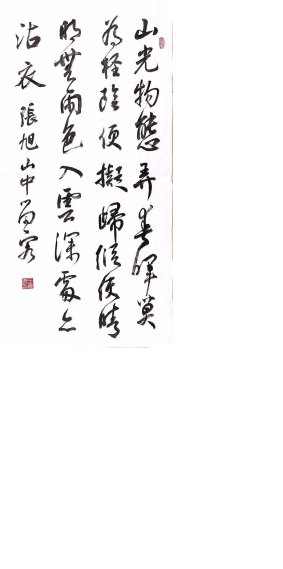 山光物態弄春暉莫
為輕陰便擬歸縱使晴
明無雨色入雲深處亦
沾衣 張旭山中留客